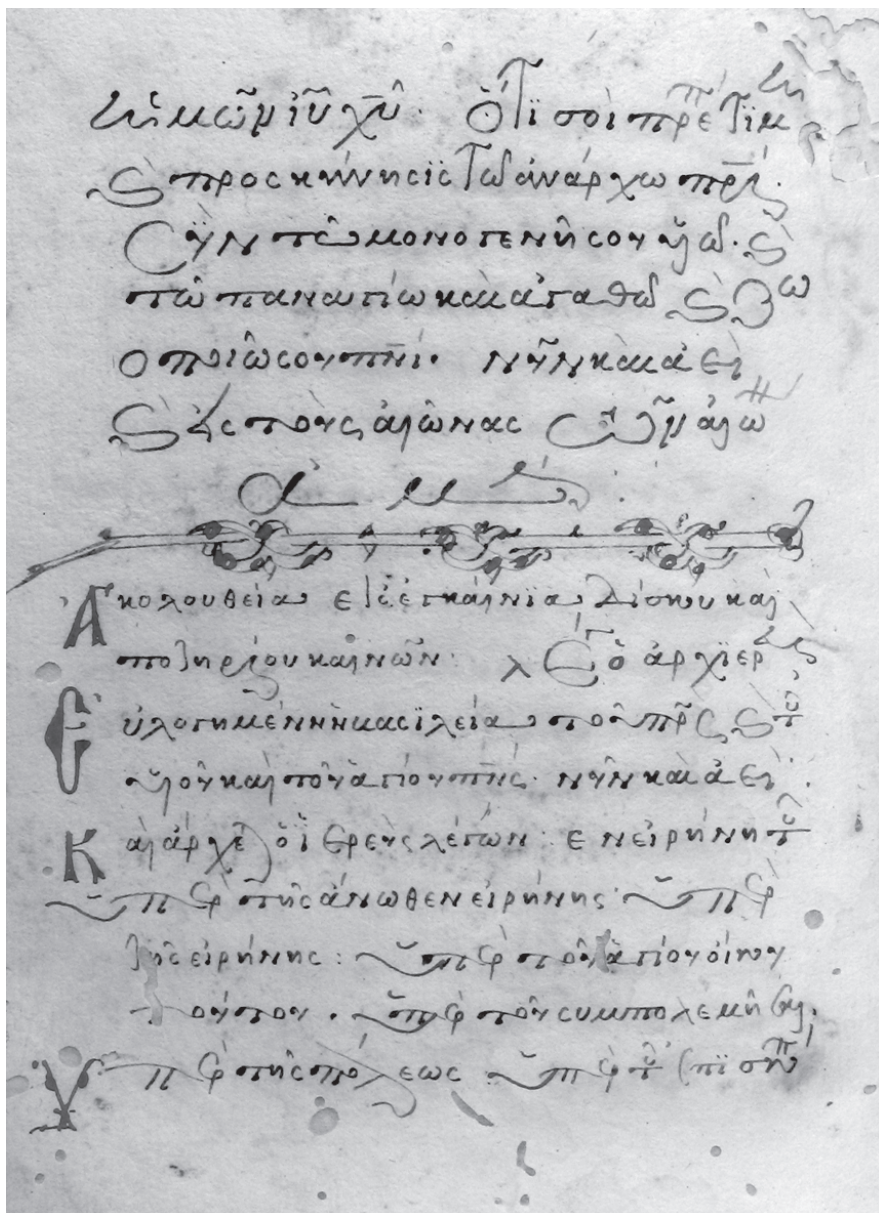 ἡμῶν ἰῦ χῦ. Ὅτι σοὶ πρέπει τιμὴ
ς προσκήνησις τῶ ἀνάρχω πρί.
Σὺν τῶ μονογενῆ σου υἱῶ. ς
τῶ παναγίω καὶ ἀγαθῶ ς ζω
οποιῶ σου πνι. νῦν καὶ ἀεὶ
ς εἰς τοὺς αἰῶνας τῶν αἰών
ἀμήν
Ἀκολουθεία εἰς ἐγκαίνια δίσκου καὶ
ποτηρίου καινῶν. ὁ ἀρχιερεὺς
Εὐλογημένη ἡ βασιλεία τοῦ πρς ς τοῦ
υἱοῦ καὶ τοῦ ἁγίου πνς. νῦν καὶ ἀεὶ.
Καὶ ἄρχε ὁ ἱερεὺς λέγων. ἐν εἰρήνη τοῦ
ὑπὲρ τῆς ἄνωθεν εἰρήνης. ὑπὲρ
τῆς εἰρήνης: ὑπὲρ τοῦ ἁγίου οἴκου
τούτου. ὑπὲρ τοῦ συμπολεμῆσαι.
Ὑπὲρ τῆς πόλεως. ὑπὲρ τοῦ